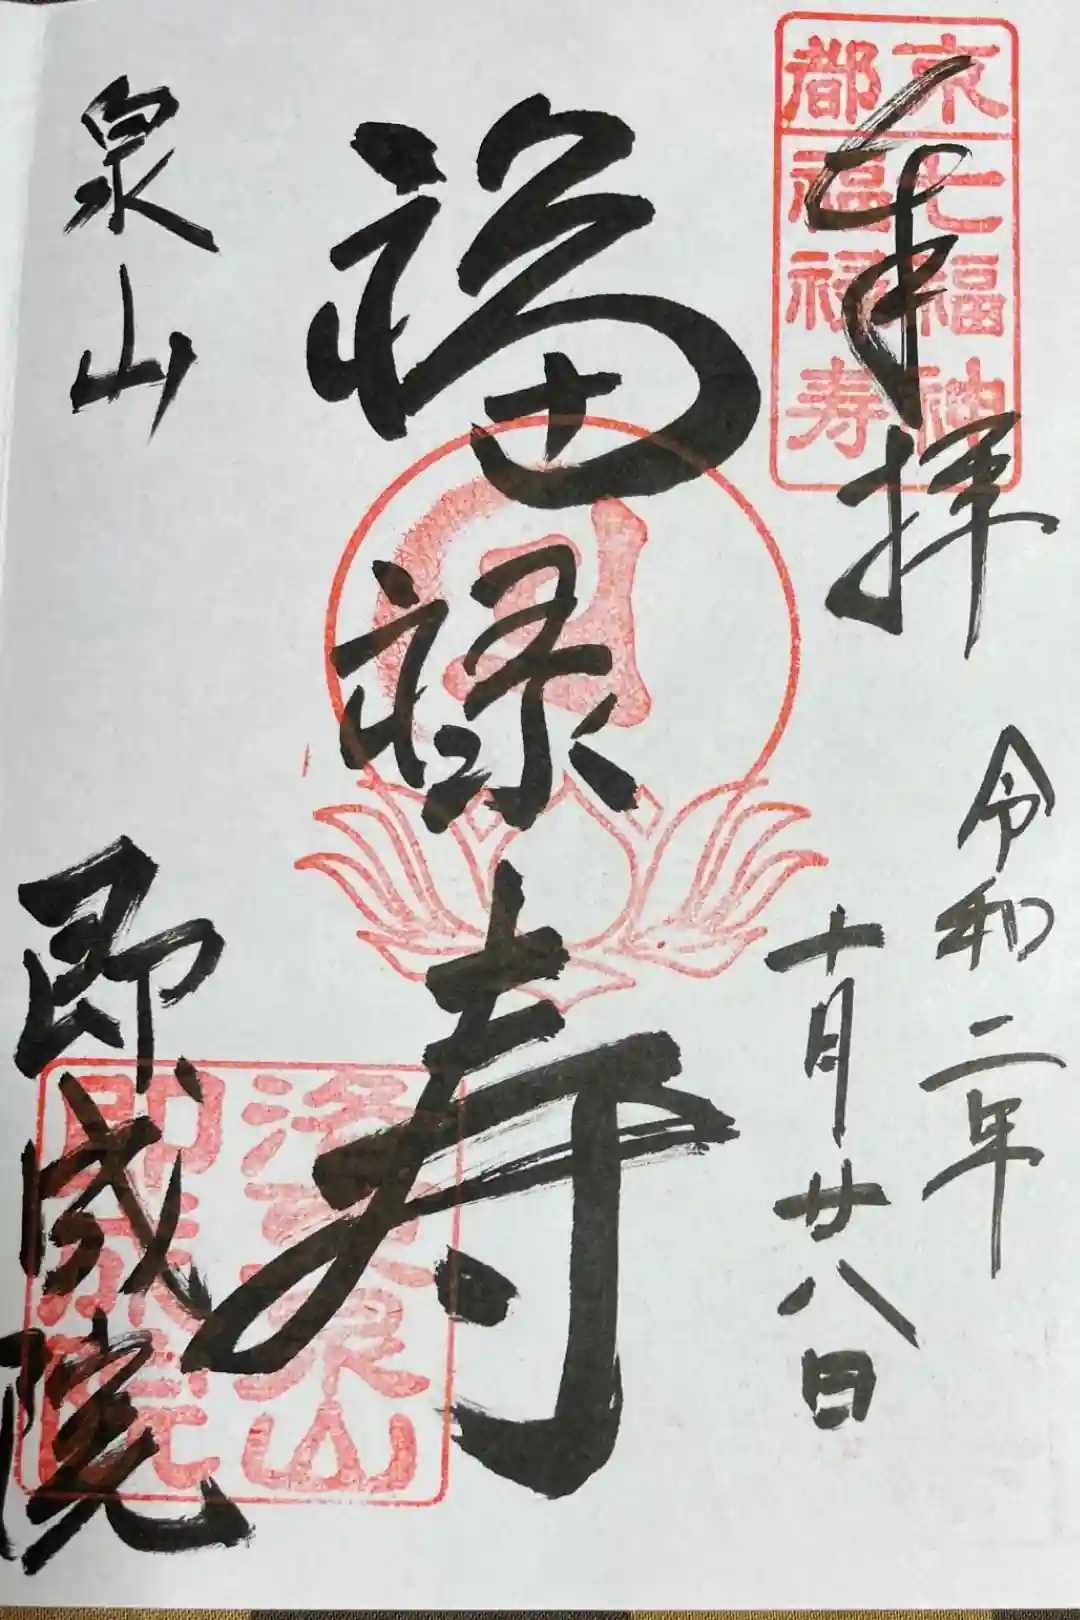 奉拝
令和二年
十月廿八日
京都
七福神
福禄寿
福禄寿
泉山
即成院
洛東
泉山
即成院